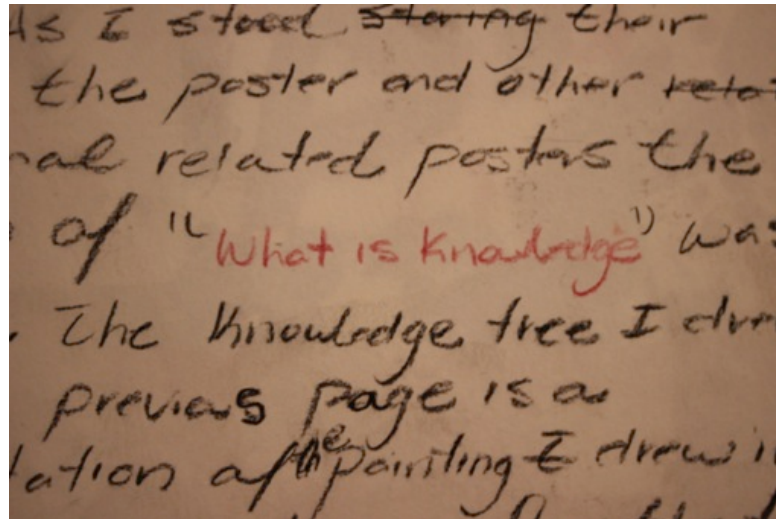 As I stood staring their
the poster and other
nal related posters the
of "What is Knowledge" was
. The Knowledge tree I drew
previous page is a
dation of the painting I drew i